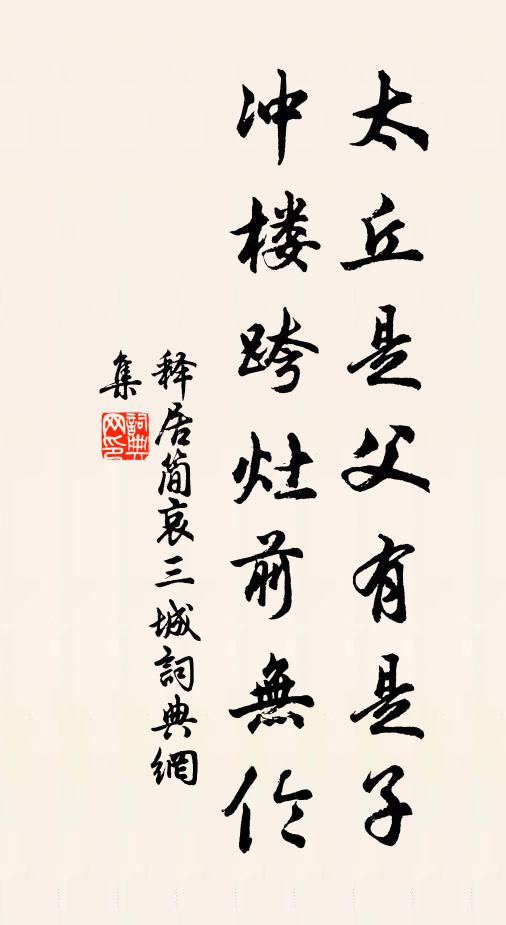 太丘是父有是子
冲楼跨灶前無伦
释居簡哀三城詞典網
集
詞典
网印